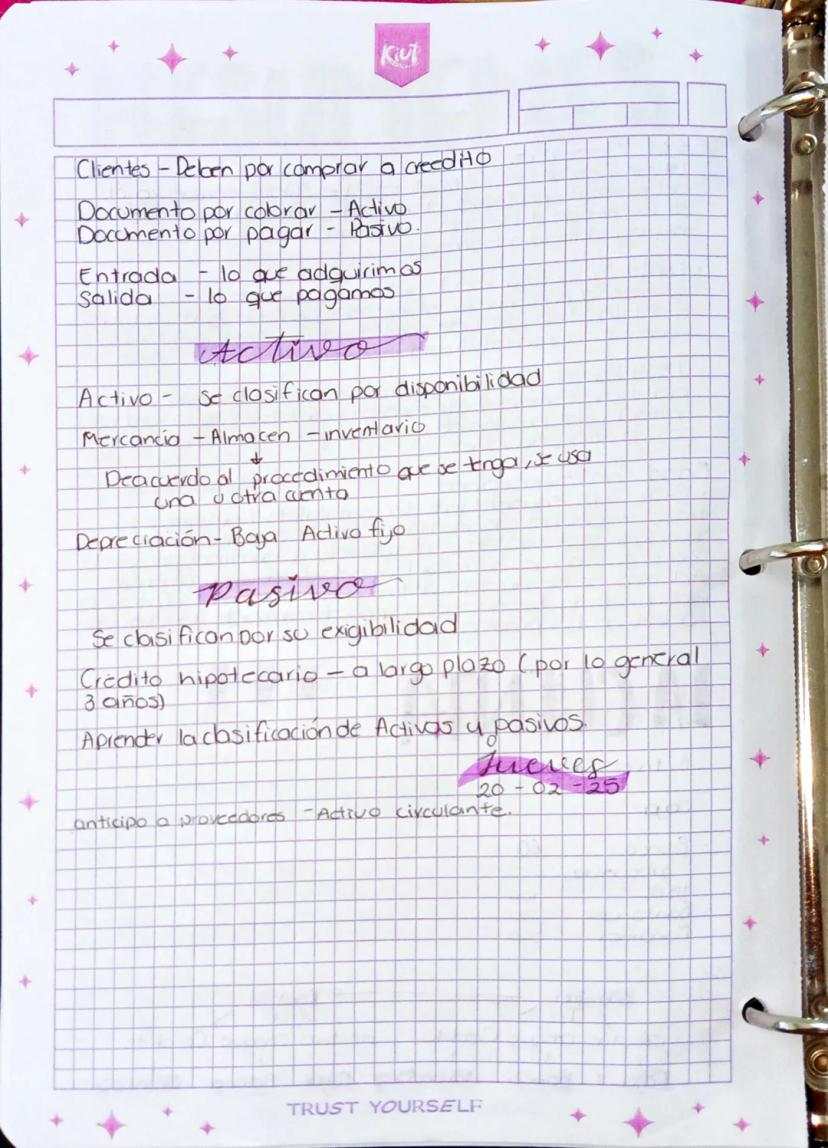 Kiut
Clientes - Deben por comprar a creedito
Documento por cobrar - Activo
Documento por pagar - Pasivo.
Entrada - lo que adquirimos
Salida - lo que pagamos
Activo
Activo - se clasifican por disponibilidad
Mercancia - Almacen - inventario
↓
Deacuerdo al procedimiento que se tenga, se usa
una u otra cuenta
Depreciación - Baja Activo fijo
Pasivo
Se clasifican por su exigibilidad
Crédito hipotecario - a largo plazo (por lo general
3 años)
Aprender la clasificación de Activos y pasivos.
Jueves
20 - 02 - 25
anticipo a proveedores - Activo circulante.
TRUST YOURSELF